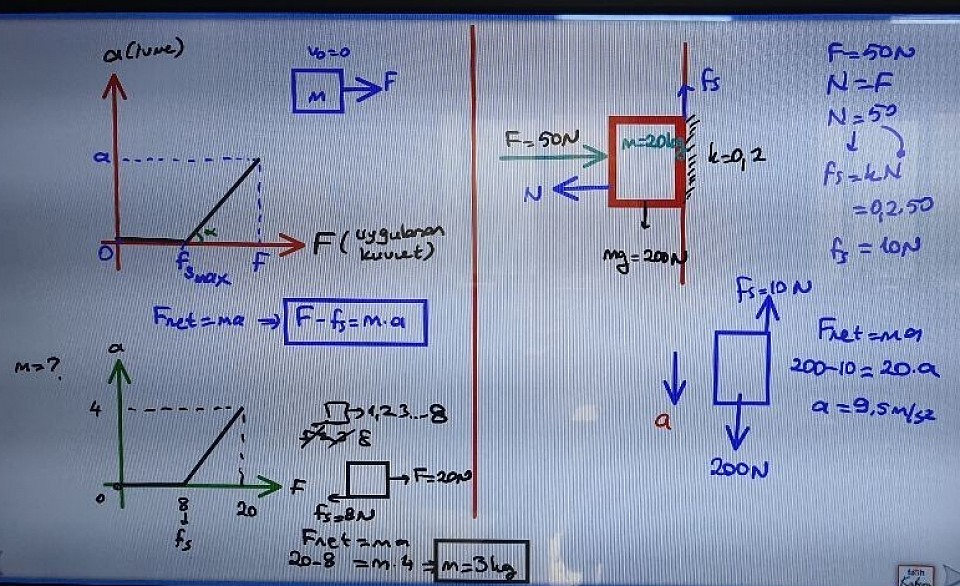 a(ivme)
v₀=0
M
F
a
α
0
fsmax
F
F (uygulanan
kuvvet)
Fnet=ma ⇒ F-fs=m.a
m=?
a
4
0
8
20
F
fs
→1,2,3...8
8
F=20N
fs=8N
Fnet=ma
20-8 =m.4 = m=3kg
fs
F=50N
m=20kg
k=0,2
N
mg=200N
F=50N
N=F
N=50
fs=kN
=0,2.50
fs=10N
fs=10N
a
200N
Fnet=ma
200-10=20.a
a=9,5m/s2